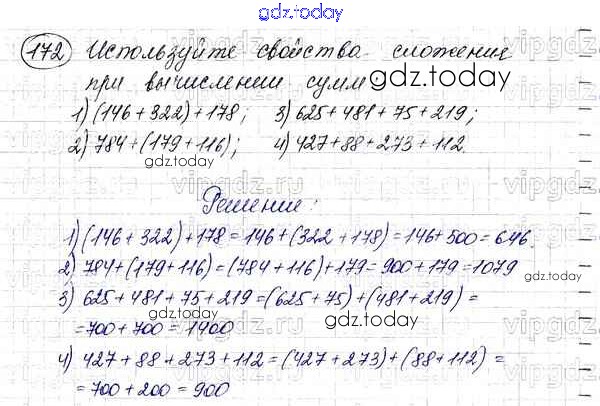 gdz.today
172 Используйте свойства сложения
при вычислении сумм
gdz.today
1) (146+322)+178; 3) 625+481+75+219;
2) 784+(179+116); 4) 427+88+273+112.
gdz.today gdz.today
Решение:
1) (146+322)+178=146+(322+178)=146+500=646.
gdz.today
2) 784+(179+116)=(784+116)+179=900+179=1079
3) 625+481+75+219=(625+75)+(481+219)=
=700+700=1400
gdz.today
4) 427+88+273+112=(427+273)+(88+112)=
=700+200=900